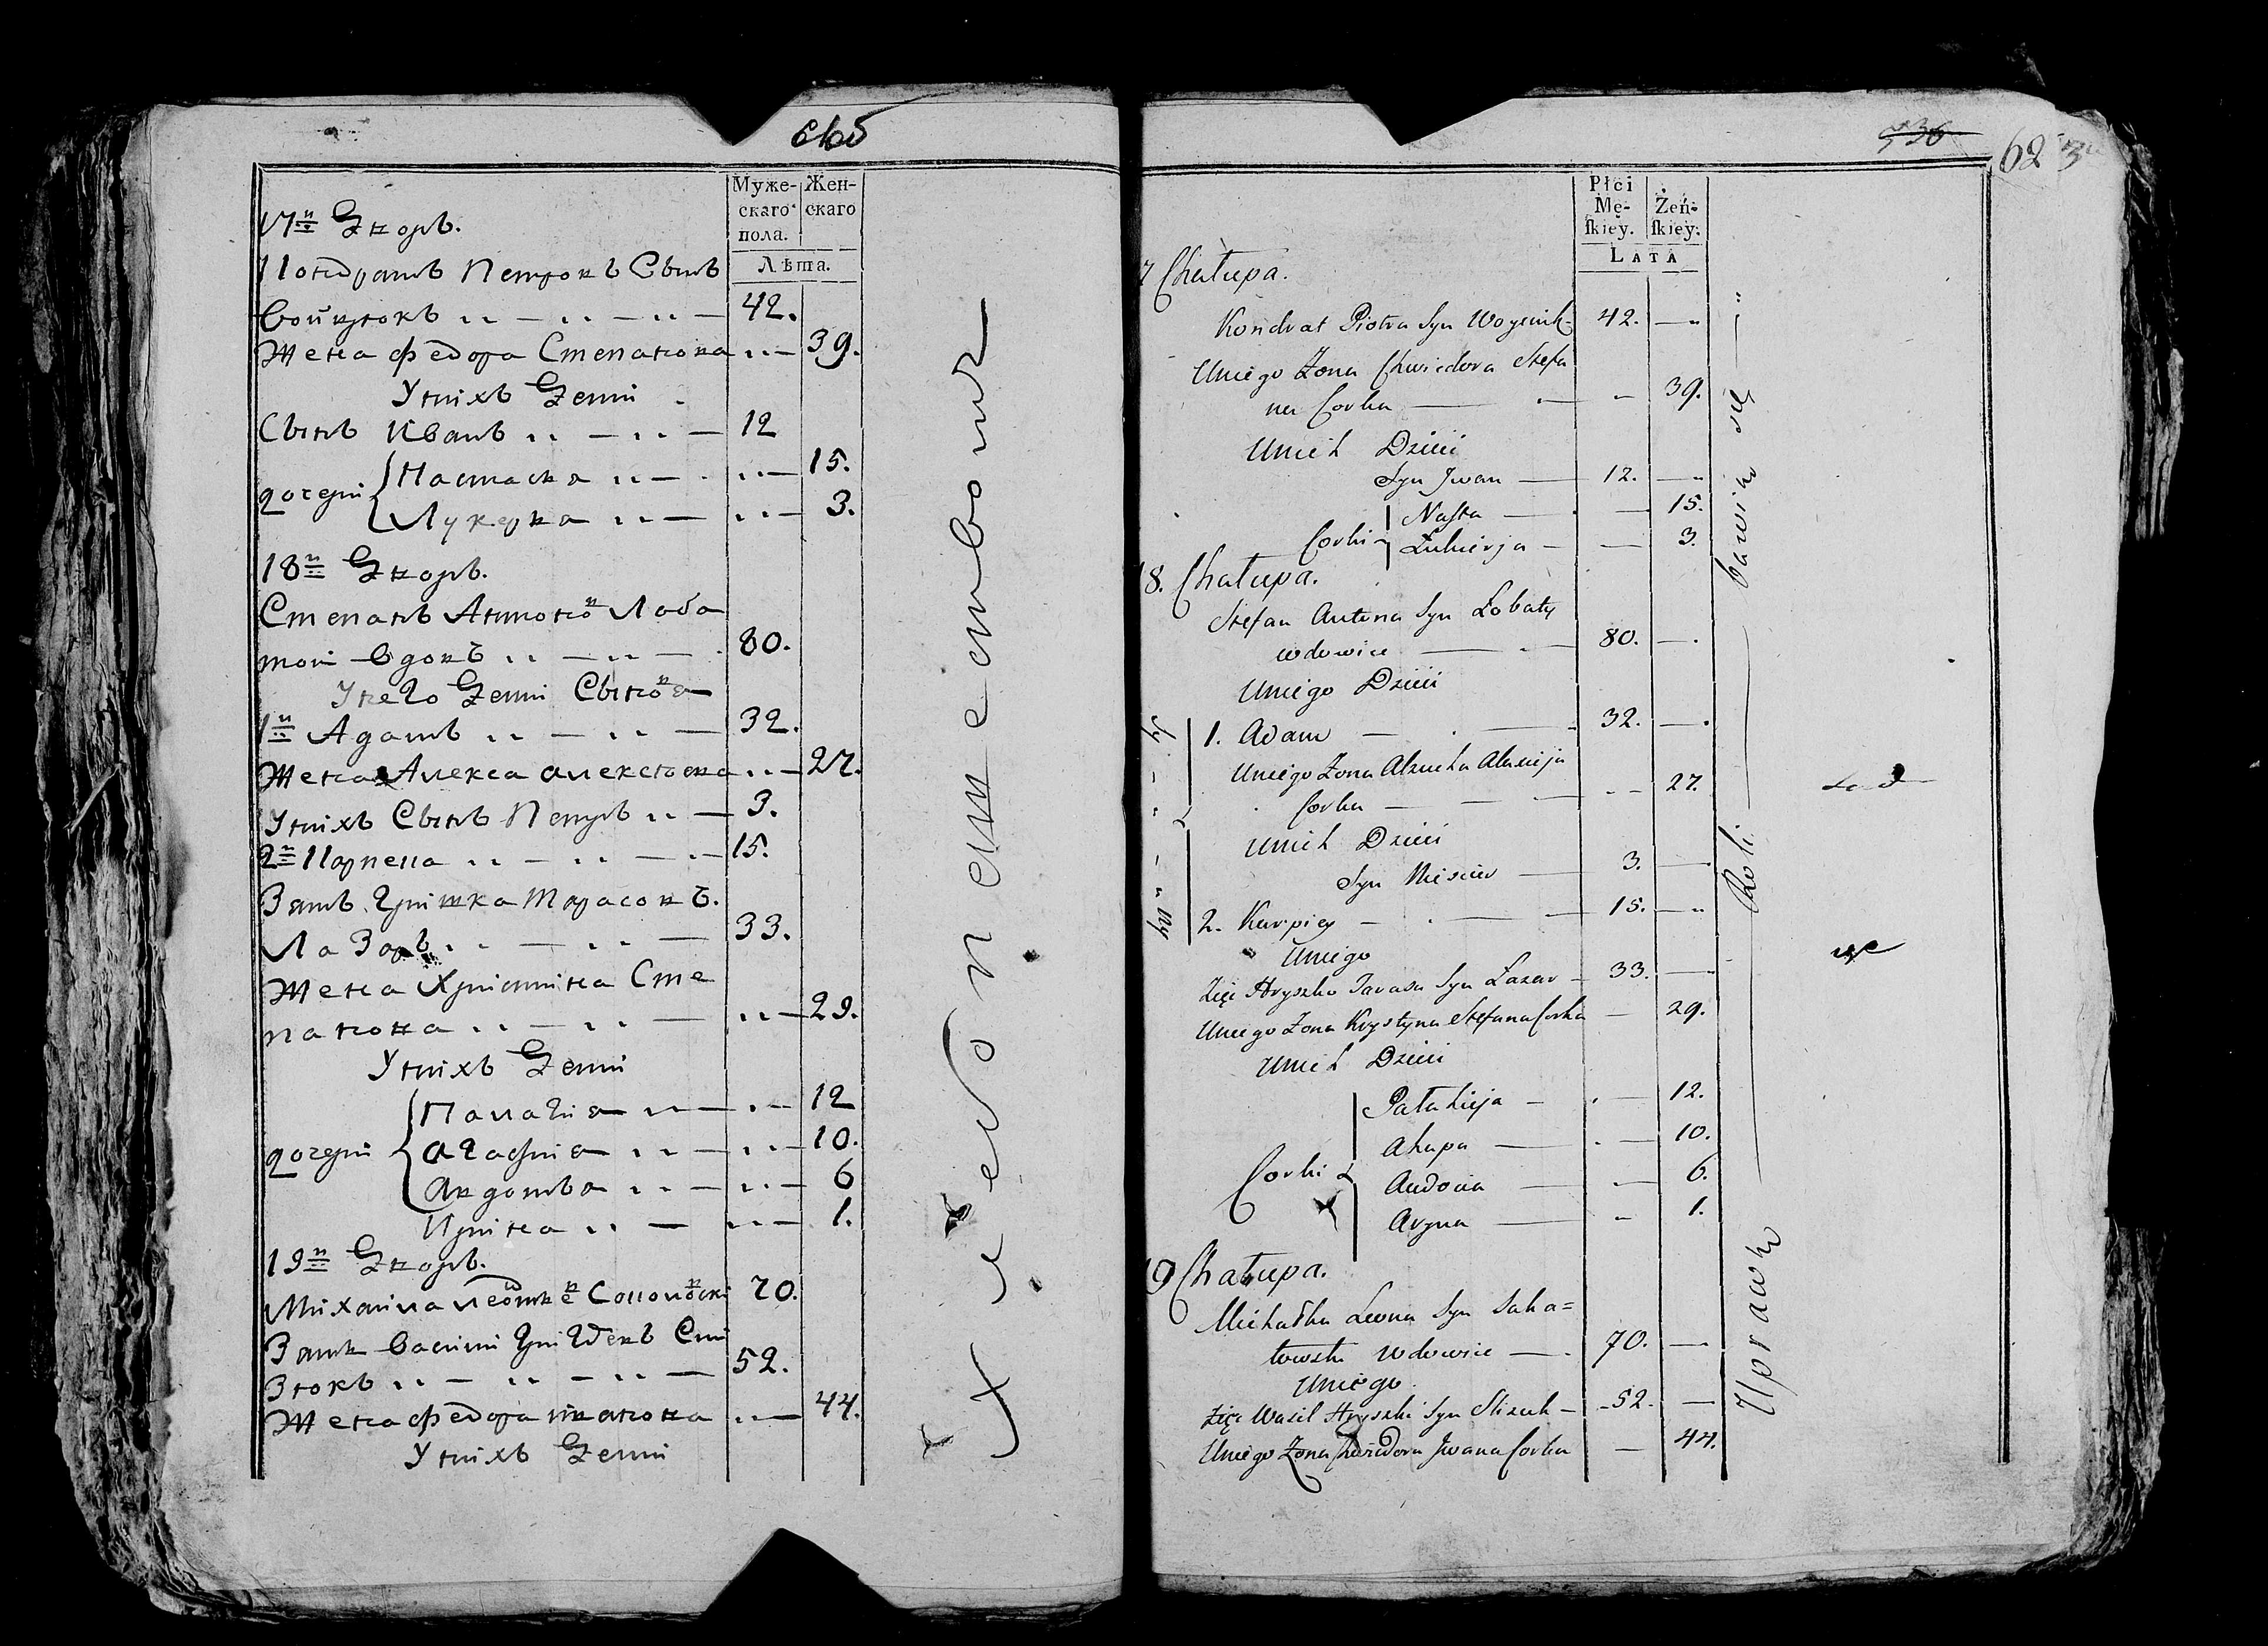 17й Дворъ.
Кондратъ Петровъ Сынъ
Войцюкъ 42.
Жена Федора Степанова 39.
У нихъ Дети
Сынъ Иванъ 12
дочери Настасья 15.
Лукерья 3.
18й Дворъ.
Степанъ Антоно в Лоба
той вдовъ 80.
У него Дети Сыновя
1й Адамъ 32.
Жена Алекса Алексеева 27.
У нихъ Сынъ Петръ 3.
2й Карпела 15.
Зять Гришка Тарасовъ.
Лазаръ 33.
Жена Христина Сте
панова 29.
У нихъ Дети
Палагия 12
дочери Агафия 10.
Авдотья 6
Ирина 1.
19й Дворъ.
Михаила 70.
Зять Василий Сли
зюкъ 52.
Жена Федора Иванова 44.
У нихъ Дети
Муже-
скаго
пола.
Жен-
скаго
Лѣта.
Хлебопашествомъ
536
62
Płci
Mę-
ſkiey.
Żeń-
ſkiey.
LATA
7 Chałupa.
Kondrat Piotra Syn Woyciuk 42.
Uniego Zona Chwiedora Stefa
na Corka 39.
Unich Dzieci
Syn Jwan 12.
Corki Nasta 15.
Łukierja 3.
8. Chałupa.
Stefan Antona Syn Łobaty
wdowiec 80.
Uniego Dzieci
1. Adam 32.
Uniego Zona
Corka 27.
Unich Dzieci
Syn 3.
2. Karpiey 15.
Uniego
Zięć Hryszko Tarasa Syn Łazar 33.
Uniego Zona Krystyna Stefana Corka 29.
Unich Dzieci
Corki Pałahija 12.
Ahapa 10.
Audocia 6.
Aryna 1.
19 Chałupa.
Michałka Leona Syn Saka=
łowski Wdowiec 70.
Uniego
Zięć Wasil Hryszki Syn Slizuk 52.
Uniego Zona Chwiedora Jwana Corka 44.
Uprawą Roli bawią się